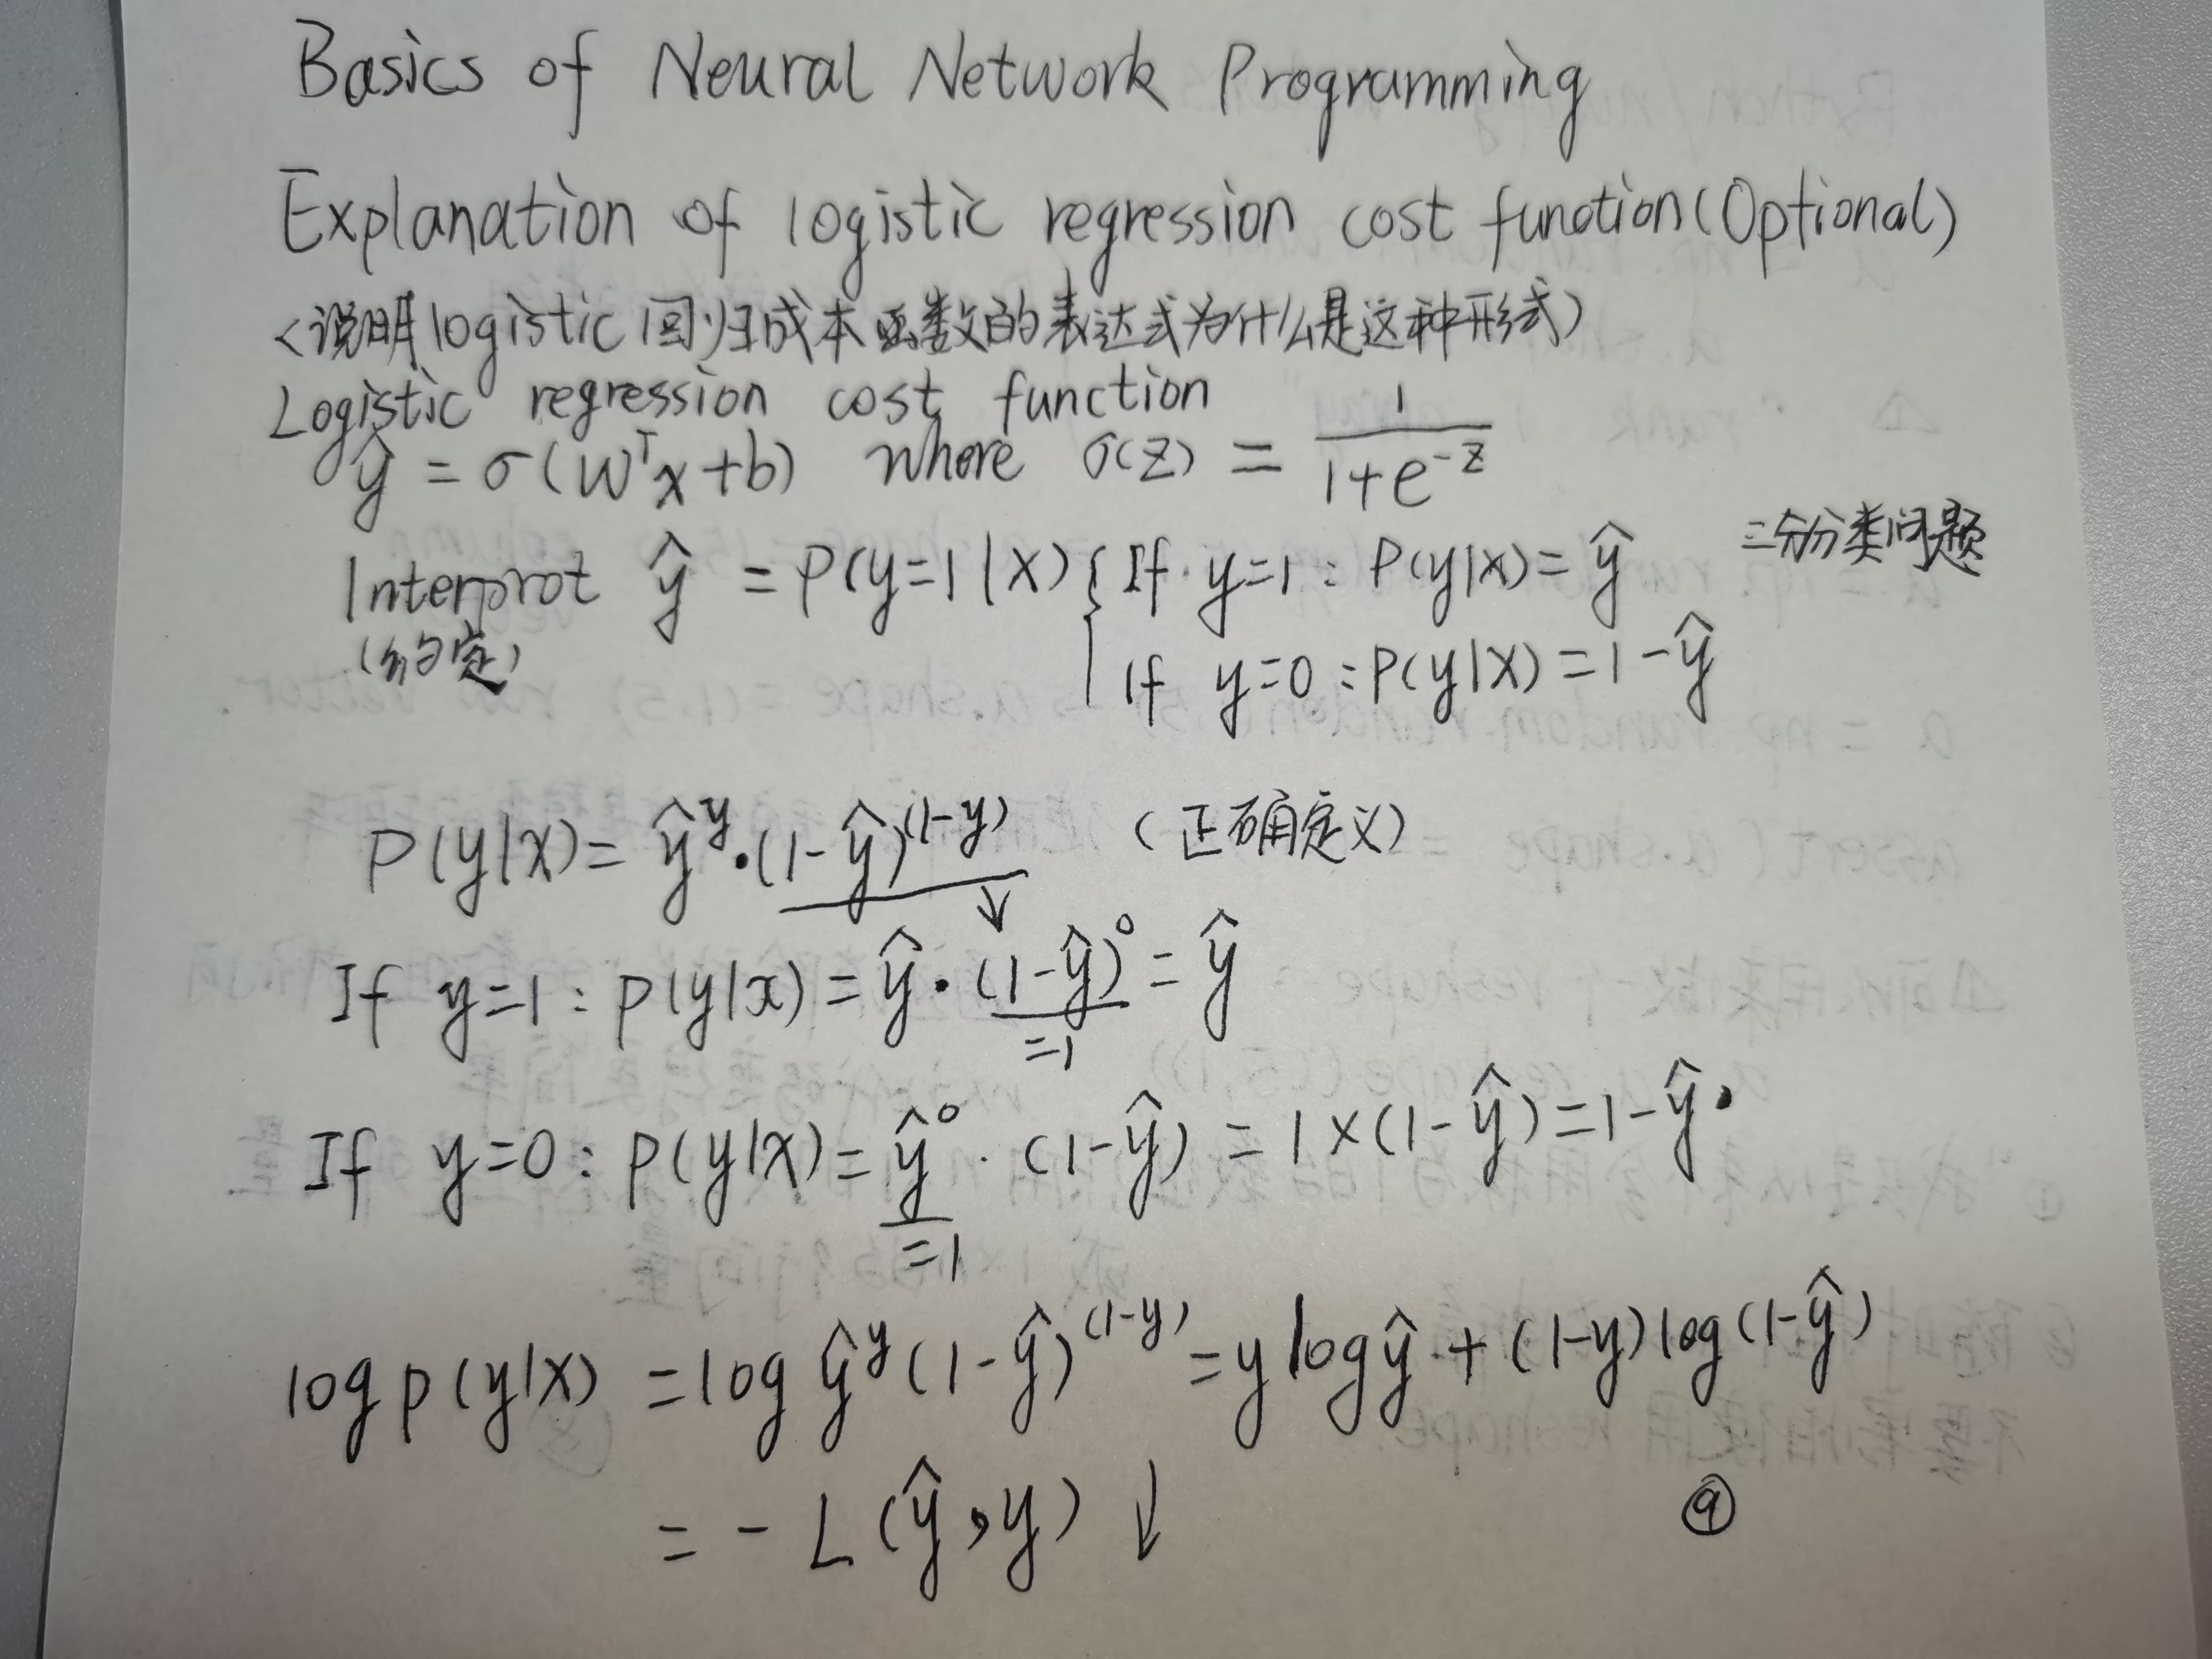 Basics of Neural Network Programming
Explanation of logistic regression cost function(Optional)
<说明logistic回归成本函数的表达式为什么是这种形式)
Logistic regression cost function
ŷ = σ(wᵀx+b) where σ(z) = 1/(1+e^{-z})
二分分类问题
Interprot ŷ = P(y=1|x) { If y=1 : P(y|x) = ŷ
(约定)
If y=0 : P(y|x) = 1-ŷ
P(y|x) = ŷ^y·(1-ŷ)^{(1-y)} (正确定义)
↓
If y=1 : P(y|x) = ŷ·(1-ŷ)^0 = ŷ
=1
If y=0 : P(y|x) = ŷ^0 · (1-ŷ) = 1×(1-ŷ) = 1-ŷ.
=1
log p(y|x) = log ŷ^y (1-ŷ)^{(1-y)} = y log ŷ + (1-y) log (1-ŷ)
= - L (ŷ, y) ↓